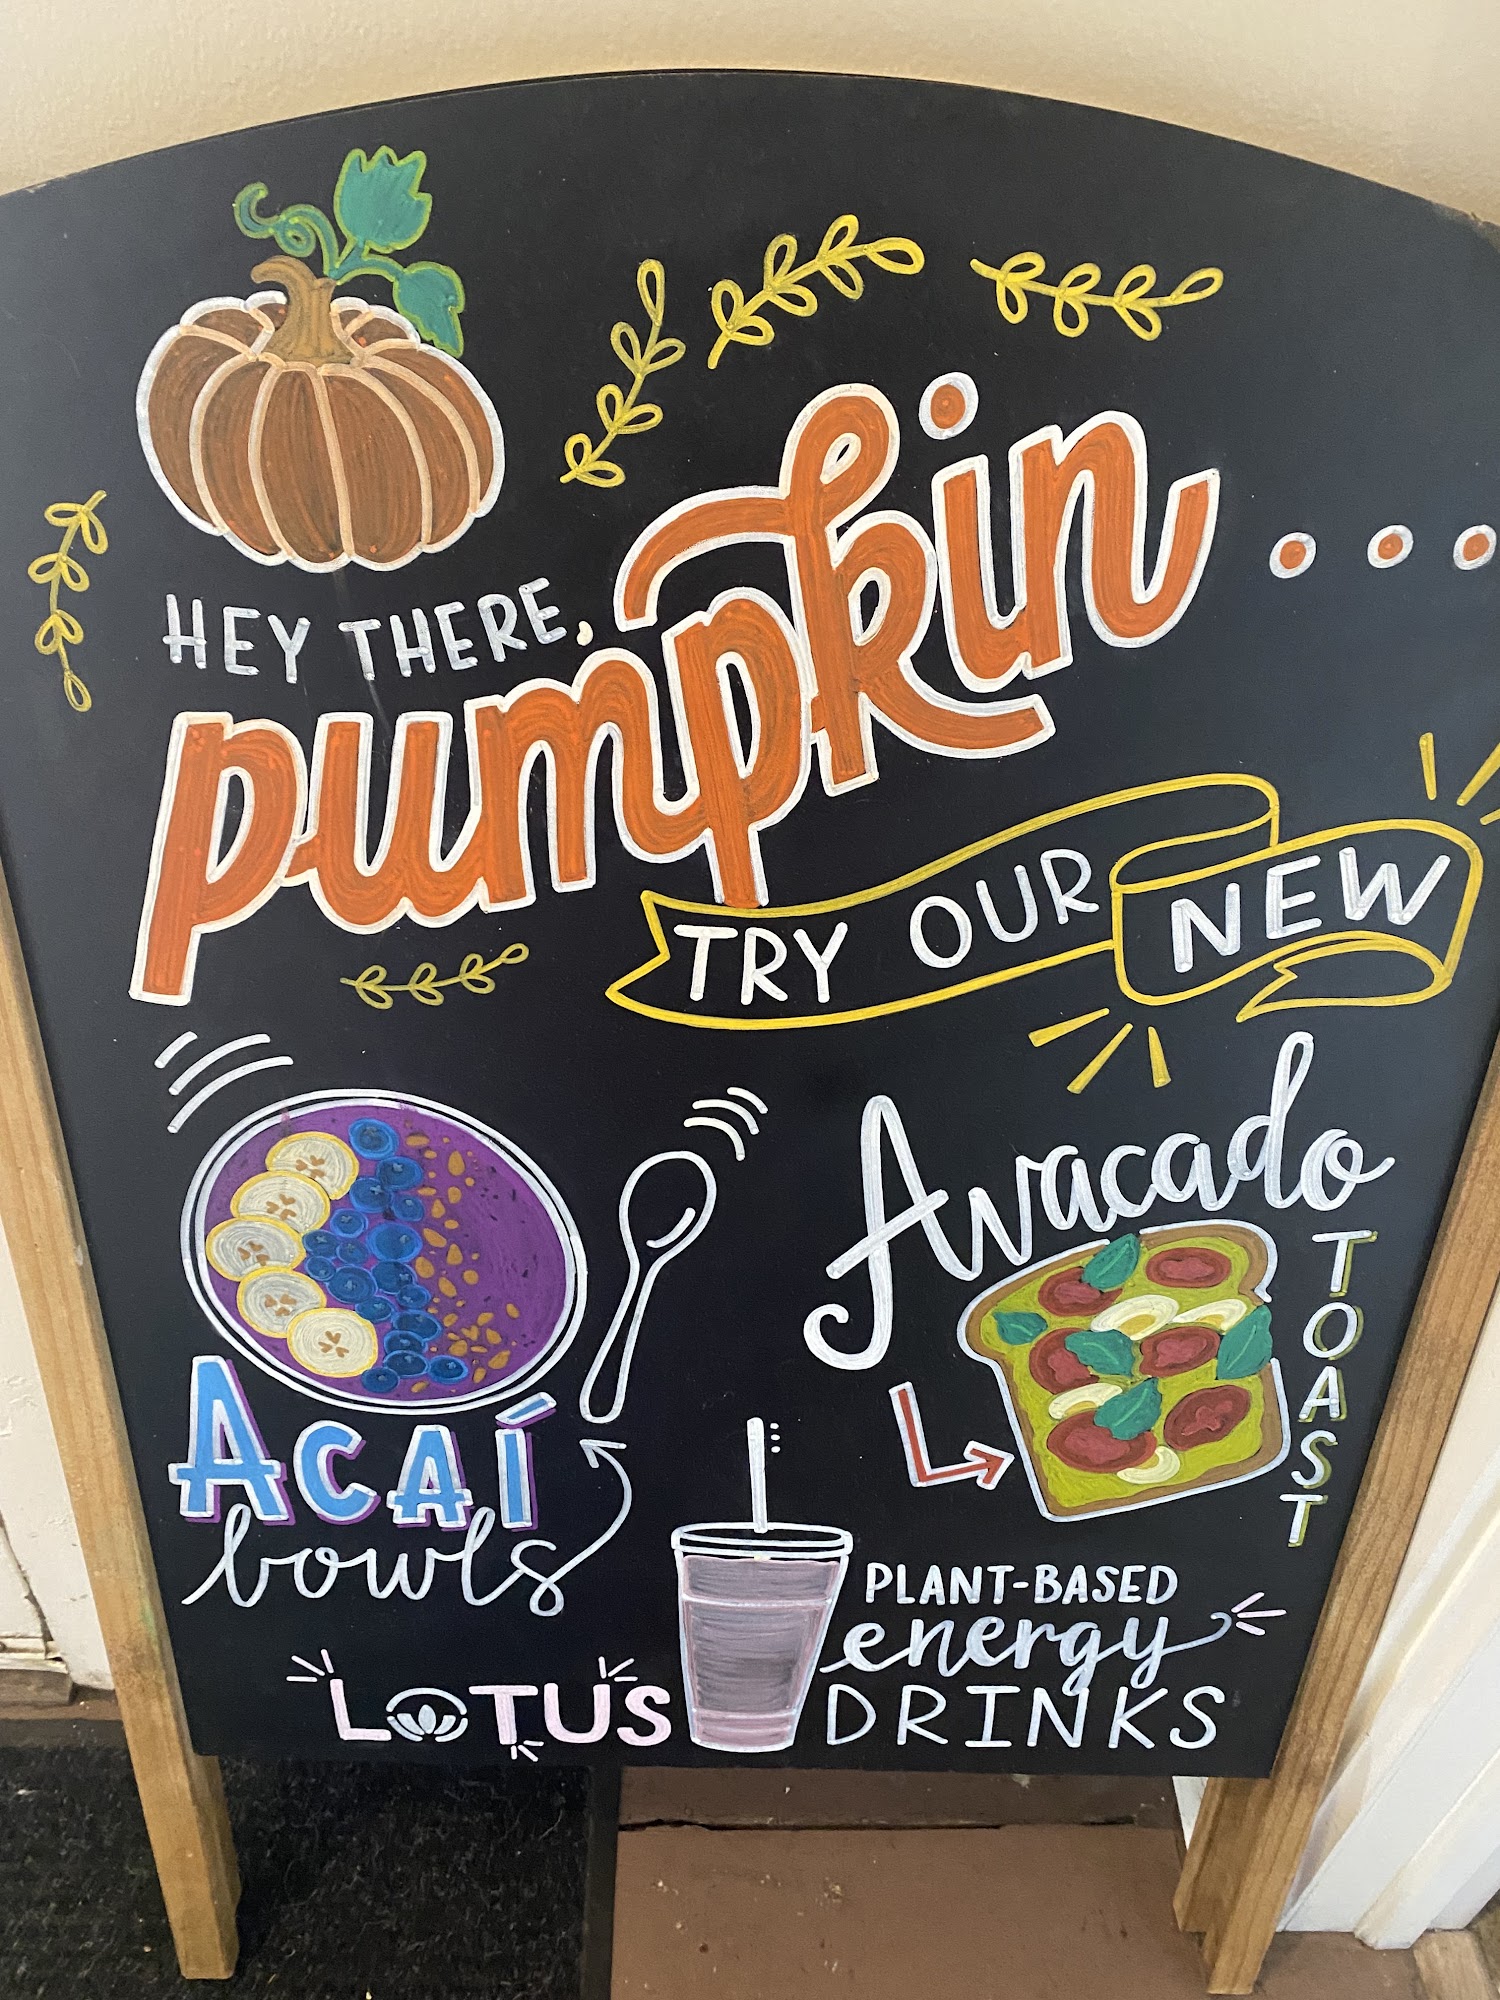 HEY THERE,
pumpkin...
TRY OUR NEW
Avacado
TOAST
Acaí
bowls
PLANT-BASED
energy
LOTUS
DRINKS